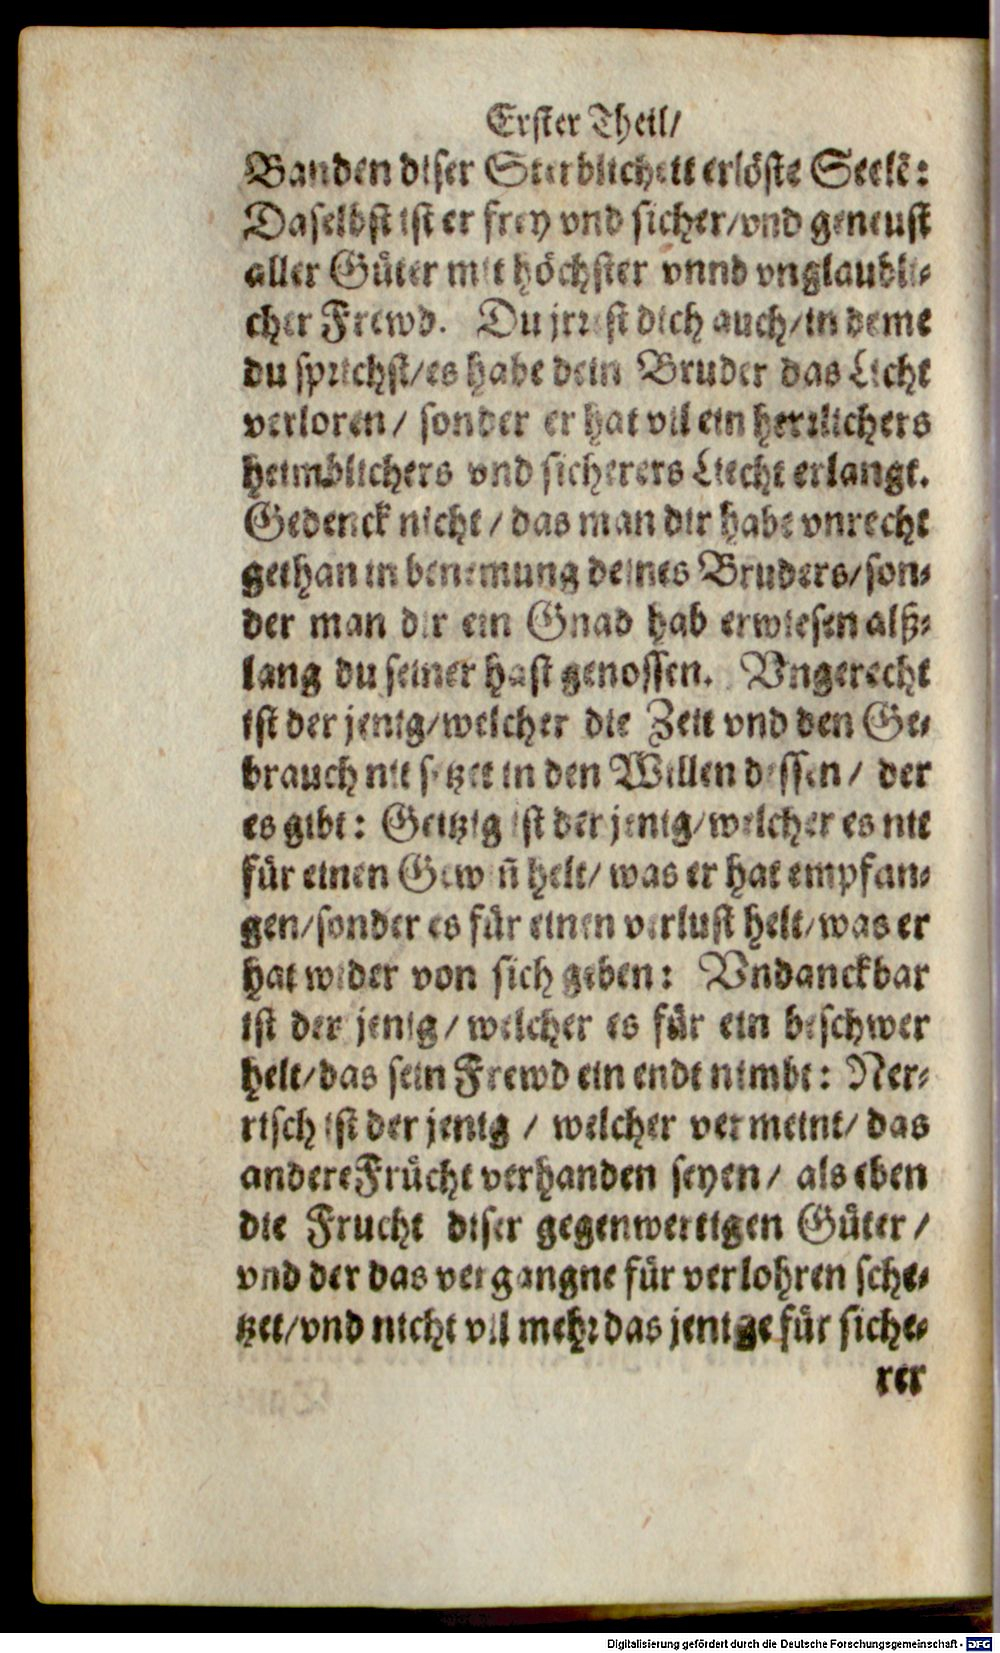 Erster Theil/
Banden diser Sterblicheit erlöste Seelẽ:
Daselbst ist er frey vnd sicher/vnd geneust
aller Gůter mit höchster vnnd vnglaubli-
cher Frewd. Du jrrest dich auch/in deme
du sprichst/es habe dein Bruder das Licht
verloren/ sonder er hat vil ein herrlichers
heimblichers vnd sicherers Liecht erlangt.
Gedenck nicht/ das man dir habe vnrecht
gethan in benemung deines Bruders/son-
der man dir ein Gnad hab erwiesen alß-
lang du seiner hast genossen. Vngerecht
ist der jenig/welcher die Zeit vnd den Ge-
brauch nit setzet in den Willen dessen/ der
es gibt: Geitzig ist der jenig/welcher es nit
für einen Gewiñ helt/ was er hat empfan-
gen/sonder es für einen verlust helt/was er
hat wider von sich geben: Vndanckbar
ist der jenig/ welcher es für ein beschwer
helt/das sein Frewd ein endt nimbt: Ner-
risch ist der jenig / welcher vermeint/ das
andere Frůcht verhanden seyen/ als eben
die Frucht diser gegenwertigen Gůter/
vnd der das vergangne für verlohren sche-
tzet/vnd nicht vil mehr das jenige für siche-
rer
Digitalisierung gefördert durch die Deutsche Forschungsgemeinschaft - DFG